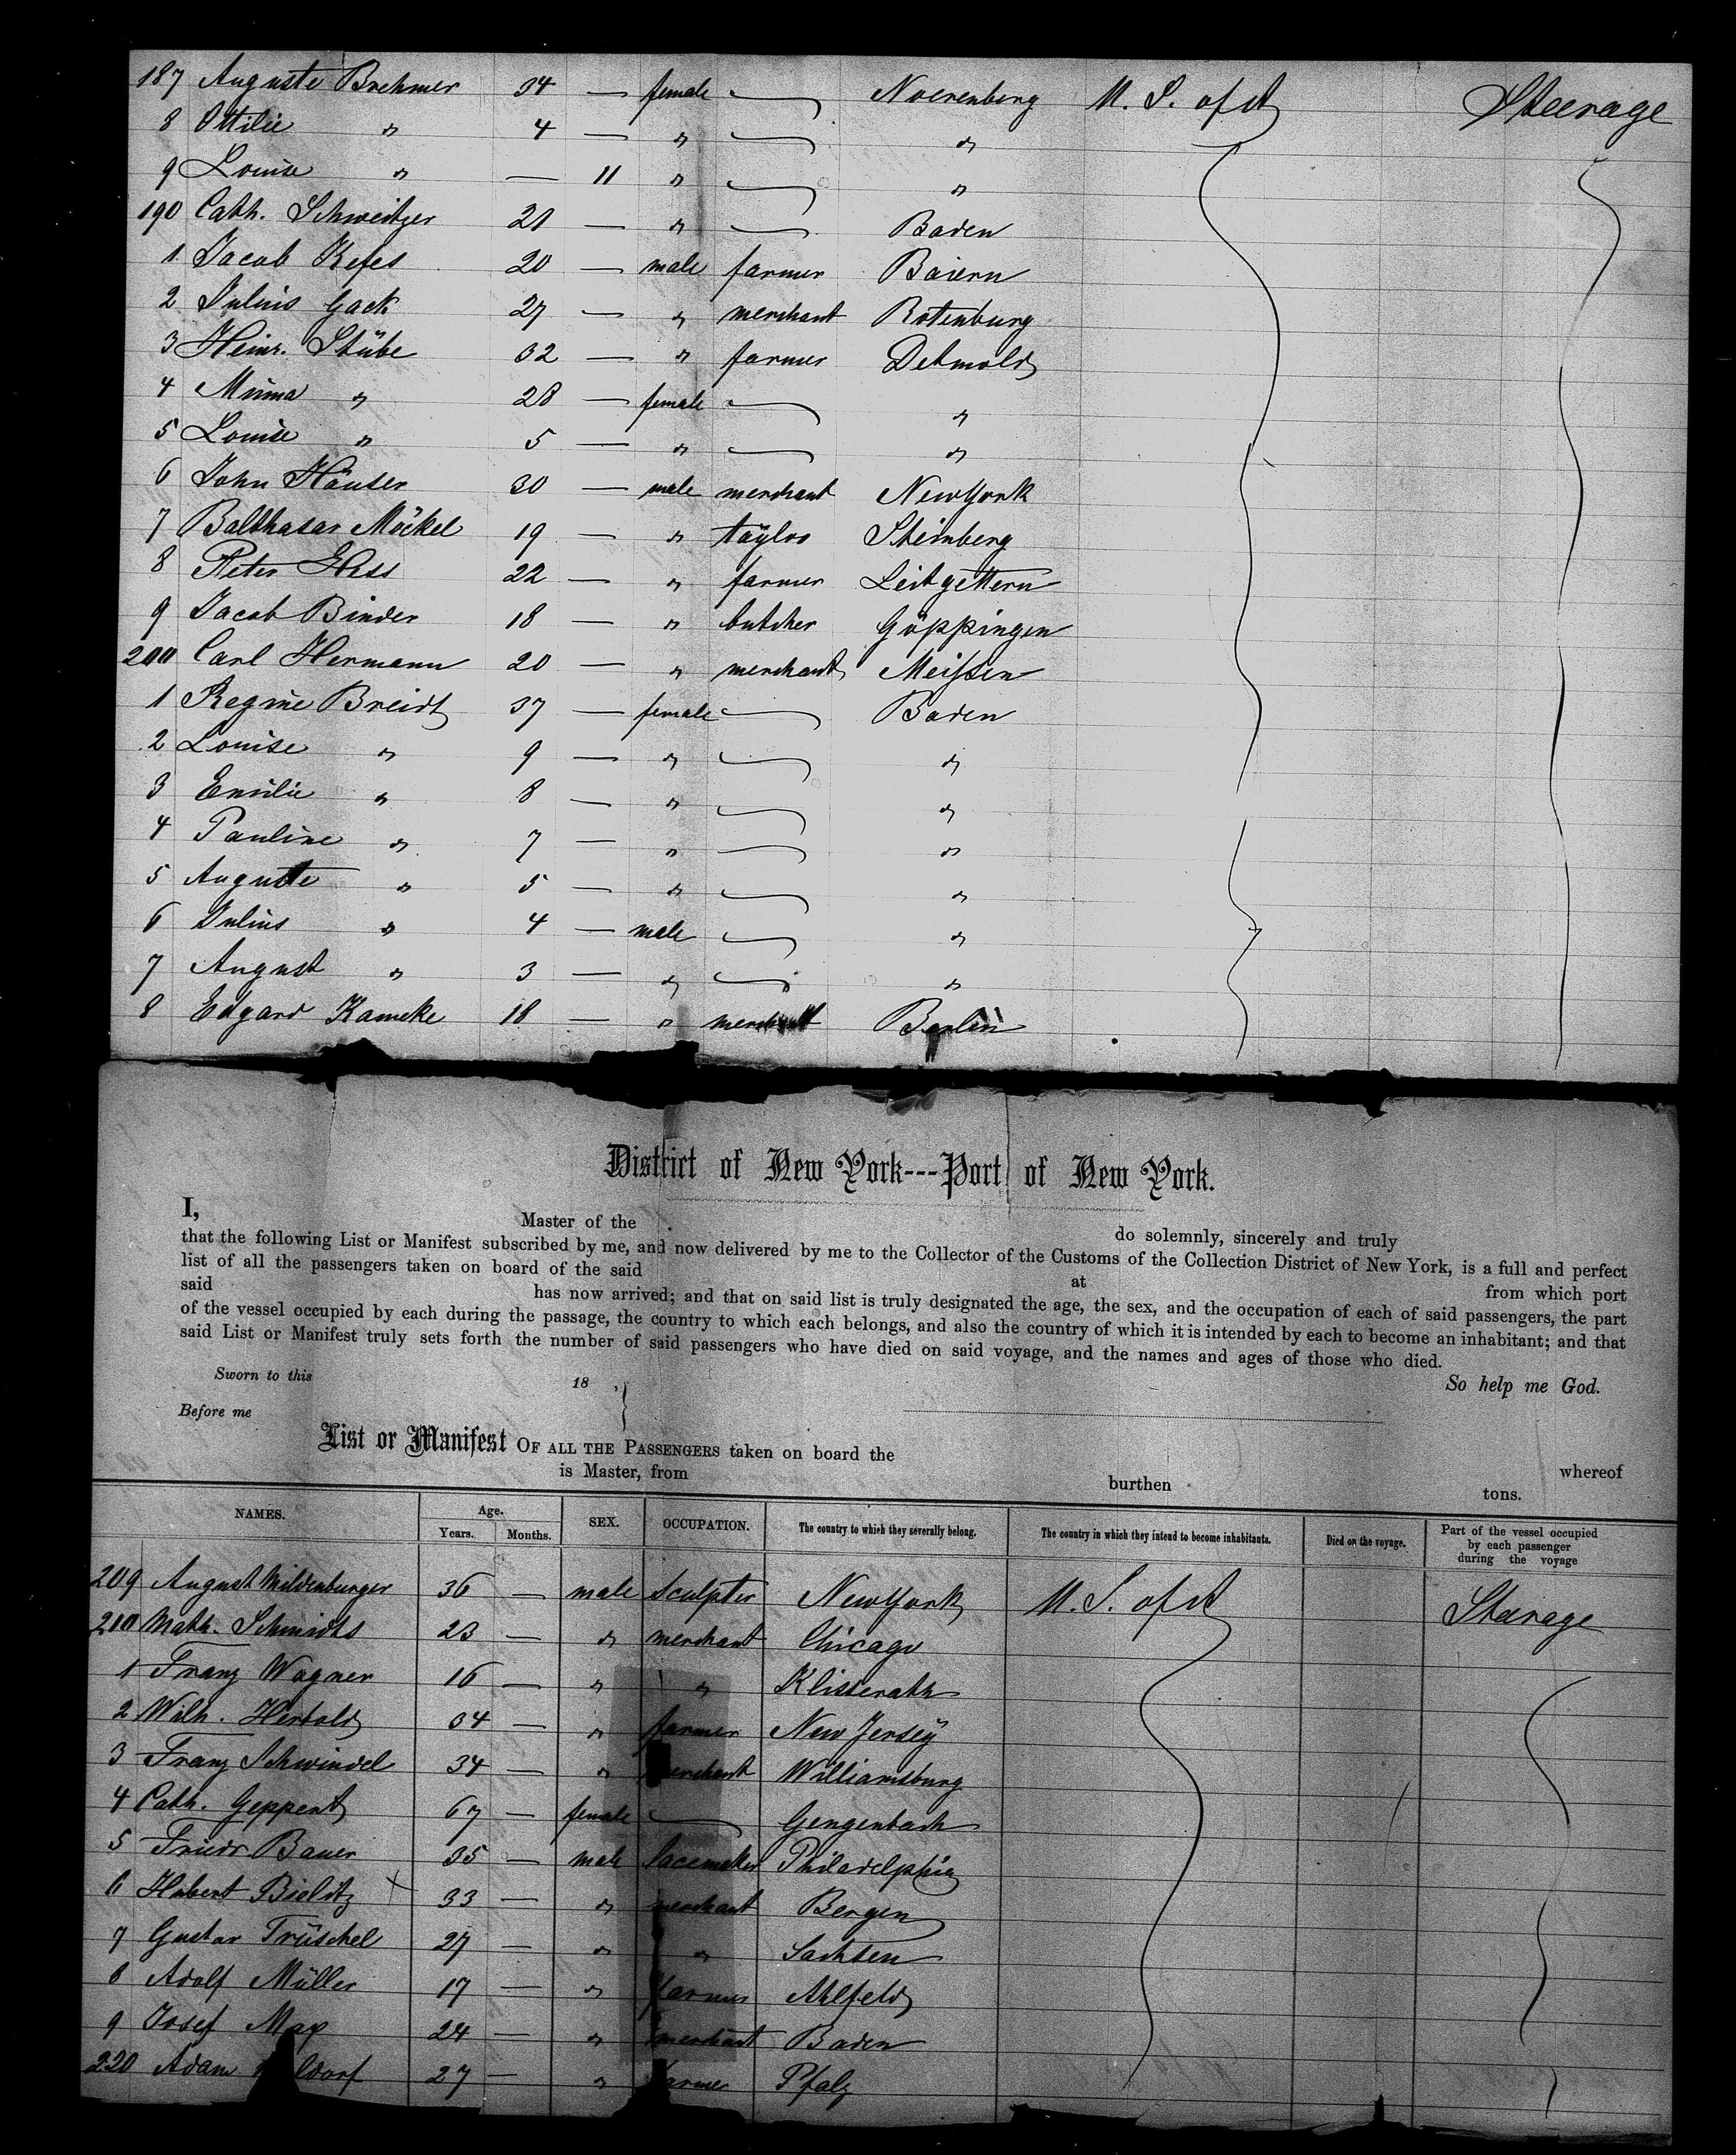 187 Auguste Brehmer 34 — female Noerenberg U. S. of A Steerage
8 Ottilie " 4 — " "
9 Louise " — 11 " "
190 Cath. Schweitzer 21 — " Baden
1 Jacob Kefes 20 — male farmer Baiern
2 Julius Gack 27 — " merchant Rotenburg
3 Heinr. Stübe 32 — " farmer Detmold
4 Minna " 28 — female "
5 Louise " 5 — " "
6 John Häuser 30 — male merchant New York
7 Balthasar Möckel 19 — " taylor Steinberg
8 Peter Hess 22 — " farmer
9 Jacob Binder 18 — " butcher Göppingen
200 Carl Hermann 20 — " merchant Meißen
1 Regine Breidt 37 — female Baden
2 Louise " 9 — " "
3 Emilie " 8 — " "
4 Pauline " 7 — " "
5 Auguste " 5 — " "
6 Julius " 4 — male "
7 August " 3 — " "
8 Edgard Kameke 18 — " merchant Berlin
District of New York---Port of New York.
I, Master of the do solemnly, sincerely and truly
that the following List or Manifest subscribed by me, and now delivered by me to the Collector of the Customs of the Collection District of New York, is a full and perfect
list of all the passengers taken on board of the said at from which port
said has now arrived; and that on said list is truly designated the age, the sex, and the occupation of each of said passengers, the part
of the vessel occupied by each during the passage, the country to which each belongs, and also the country of which it is intended by each to become an inhabitant; and that
said List or Manifest truly sets forth the number of said passengers who have died on said voyage, and the names and ages of those who died.
Sworn to this 18 , So help me God.
Before me
List or Manifest OF ALL THE PASSENGERS taken on board the whereof
is Master, from burthen tons.
NAMES. Age. SEX. OCCUPATION. The country to which they severally belong. The country in which they intend to become inhabitants. Died on the voyage. Part of the vessel occupied by each passenger during the voyage
Years. Months.
209 August Mildenburger 36 — male Sculpter New York U. S. of A Steerage
210 Math. Schmidts 23 — " merchant Chicago
1 Franz Wagner 16 — " " Klisserath
2 Wilh. Herbold 34 — " farmer New Jersey
3 Franz Schwindel 34 — " merchant Williamsburg
4 Cath. Geppert 67 — female Gengenbach
5 Friedr Bauer 35 — male lacemaker Philadelphia
6 Hubert Bielitz 33 — " merchant Bergen
7 Gustav Trüschel 27 — " " Sachsen
8 Adolf Müller 17 — " farmer Ahlfeld
9 Josef May 24 — " merchant Baden
220 Adam 27 — " farmer Pfalz